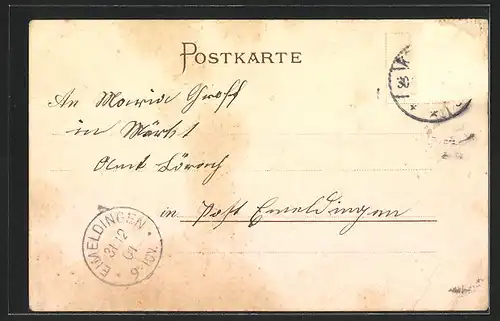 POSTKARTE
30
An Maria Groff
in Märkt
Amt Lörrach
in Post Emeldingen
EIMELDINGEN
31 12
01
9-10V.